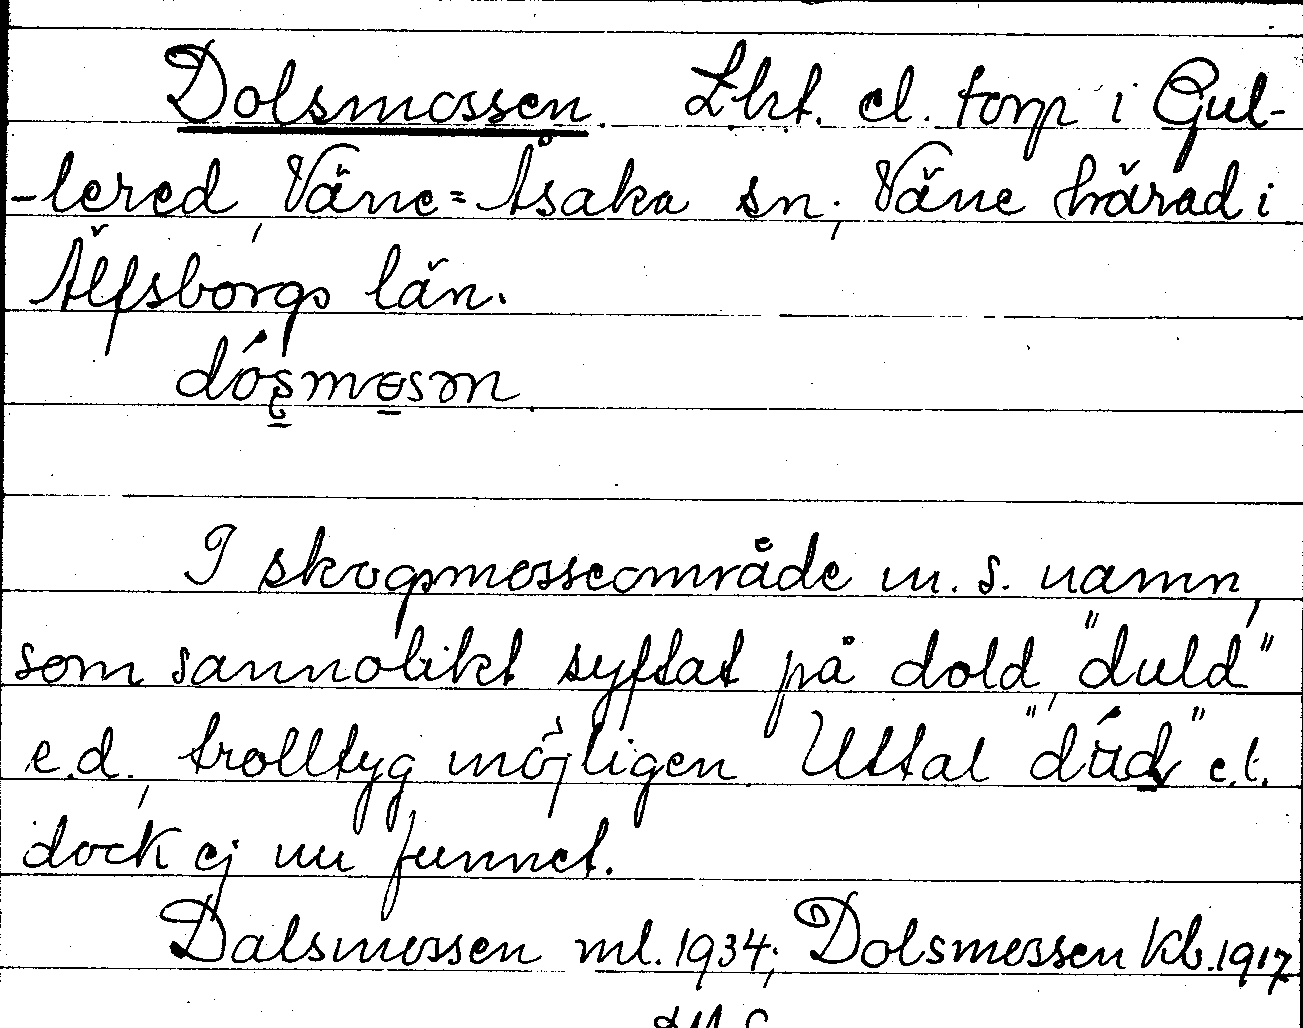 Dolsmossen. Lht. el. torp i Gul-
-lered, Väne=Åsaka sn, Väne härad i
Älfsborgs län.
I skogsmosseområde m. s. namn,
som sannolikt syftat på dold, "duld"
e.d., trolltyg möjligen. Uttal e.t.
dock ej nu funnet.
Dalsmossen ml. 1934; Dolsmossen Kb. 1917